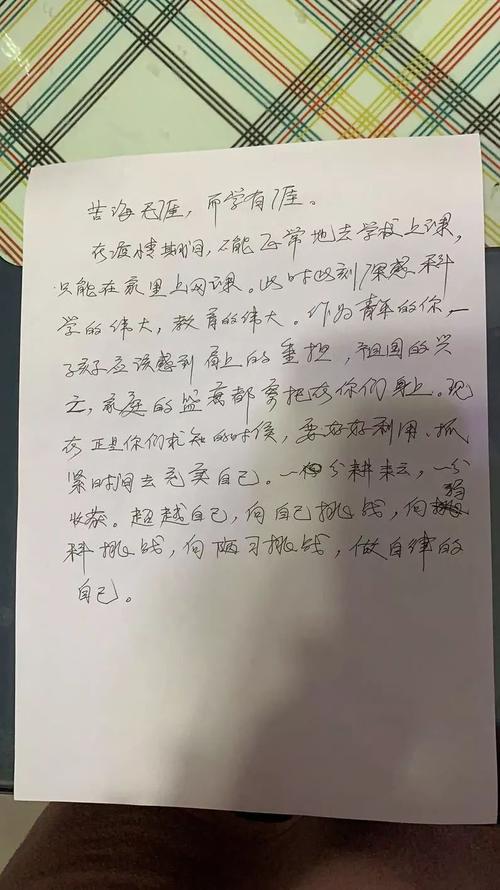 苦海无涯，而学有涯。
在疫情期间，不能正常地去学校上课，
只能在家里上网课。此时此刻深感科
学的伟大，教育的伟大。作为青年的你，一
孩子应该感到肩上的重担，祖国的兴
亡，家庭的盛衰都寄托在你们身上。现
在正是你们求知的时候，要好好利用、抓
紧时间去充实自己。一份耕耘，一分
收获。超越自己，向自己挑战，向弱
科挑战，向陋习挑战，做自律的
自己。